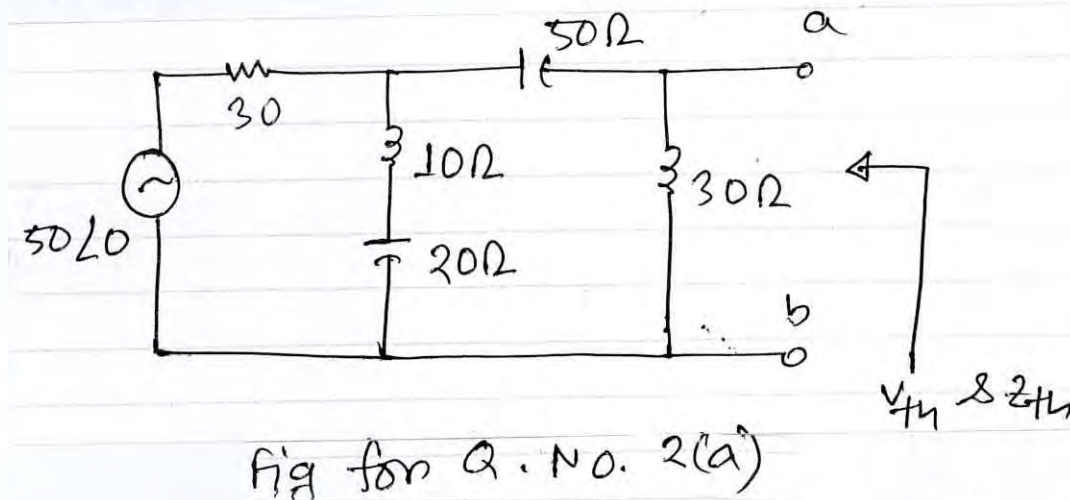 50Ω
a
30
10Ω
30Ω
50∠0
20Ω
b
Vth & Zth
Fig for Q. No. 2(a)